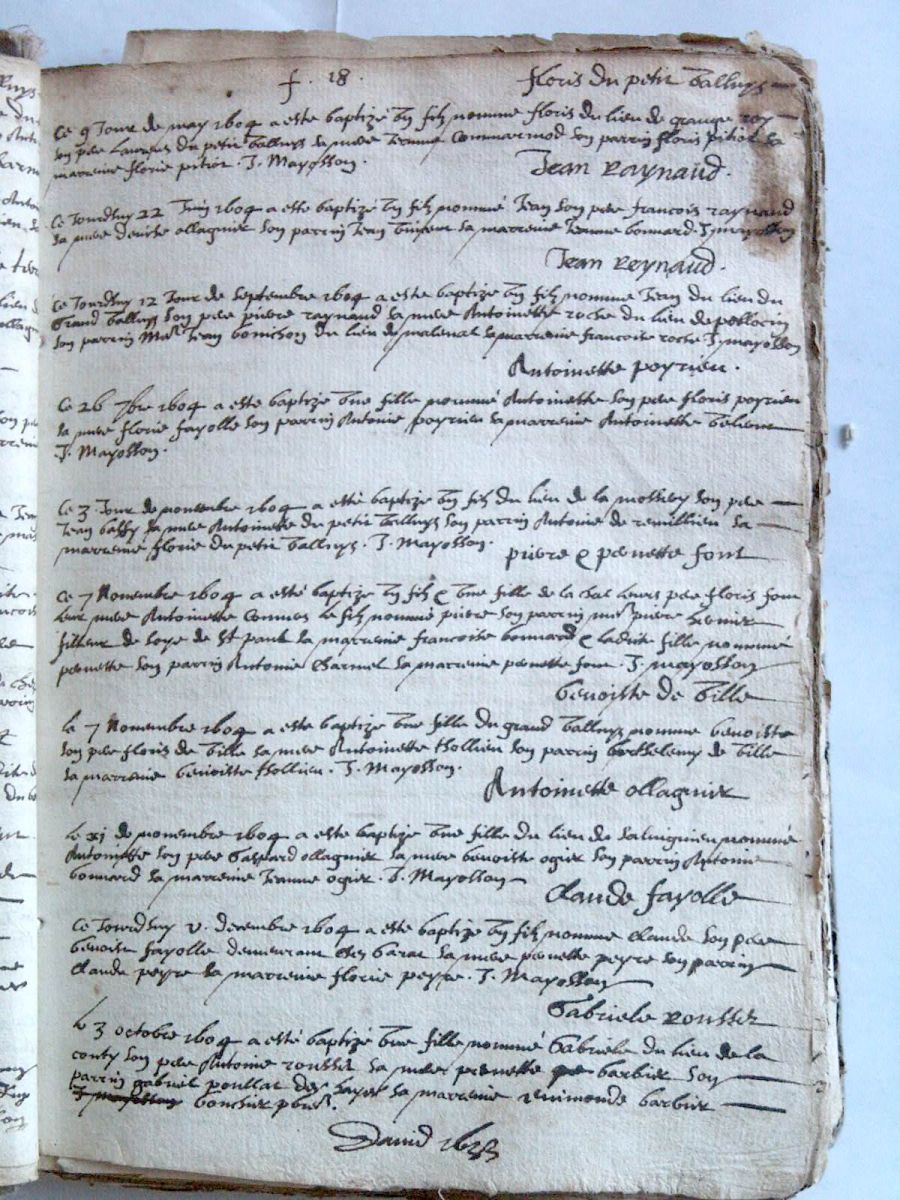 f. 18. floris du petit balluys
Ce 9 Jour de may 1604 a este baptizé un filz nommé floris du lieu de grange roy
son pere Laurens du petit balluys sa mere Jeanne Commarmod son parrin floris pitiot sa
marreine florie pitiot. J. Mayosson.
Jean Raynaud.
Ce Jourdhuy 22 Juin 1604 a este baptizé un filz nommé Jean son pere francois raynaud
sa mere denise ollagnier son parrin Jean sa marreine Jeanne bonnard. J. mayosson
Jean Reynaud.
Ce Jourdhuy 12 Jour de septembre 1604 a este baptizé un filz nommé Jean du lieu du
Grand balluys son pere pierre raynaud sa mere Antoinette roche du lieu de
son parrin Jean bonchon du lieu de maleval sa marreine francoise roche J. mayosson
Antoinette poyrieu.
Ce 26 7bre 1604 a este baptizé une fille nommé Antoinette son pere floris poyrieu
sa mere florie fayolle son parrin Antoine poyrieu sa marreine Antoinette
J. Mayosson.
Ce 3 Jour de novembre 1604 a esté baptizé un filz du lieu de la son pere
Jean sa mere Antoinette du petit balluys son parrin Antoine de remillieu sa
marreine florie du petit balluys. J. Mayosson.
pierre & pernette font
Ce 7 Novembre 1604 a esté baptizé un filz & une fille de la leurs pere floris font
leur mere Antoinette le filz nommé pierre son parrin pierre
de St paul sa marreine francoise bonnard & ladite fille nommé
pernette son parrin Antoine Charmet sa marreine pernette font. J. mayosson
benoiste de Ville
Le 7 Novembre 1604 a este baptizé une fille du grand balluys nommé benoiste
son pere floris de Ville sa mere Antoinette thollieu son parrin berthelemy de Ville
sa marreine benoiste thollieu. J. Mayosson.
Antoinette ollagnier
Le xj de novembre 1604 a este baptizé une fille du lieu de nommé
Antoinette son pere Gaspard ollagnier sa mere benoiste ogier son parrin Antoine
bonnard sa marreine Jeanne ogier. J. Mayosson
Claude fayolle
Ce Jourdhuy v. decembre 1604 a este baptizé un filz nommé Claude son pere
benoist fayolle demeurant chez sa mere pernette peyre son parrin
Claude peyre sa marreine florie peyre. J. Mayosson
Gabriele rousset
Le 3 octobre 1604 a esté baptizé une fille nommé Gabriele du lieu de la
conty son pere Antoine rousset sa mere pernette barbier son
parrin gabriel poullat des hayes sa marreine reimonde barbier
J. mayosson bonchier
David